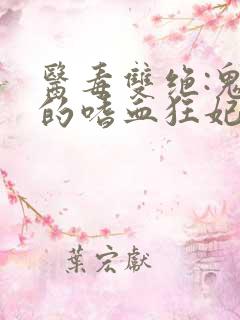 醫毒雙绝:鬼
的嗜血狂妃
葉宏獻